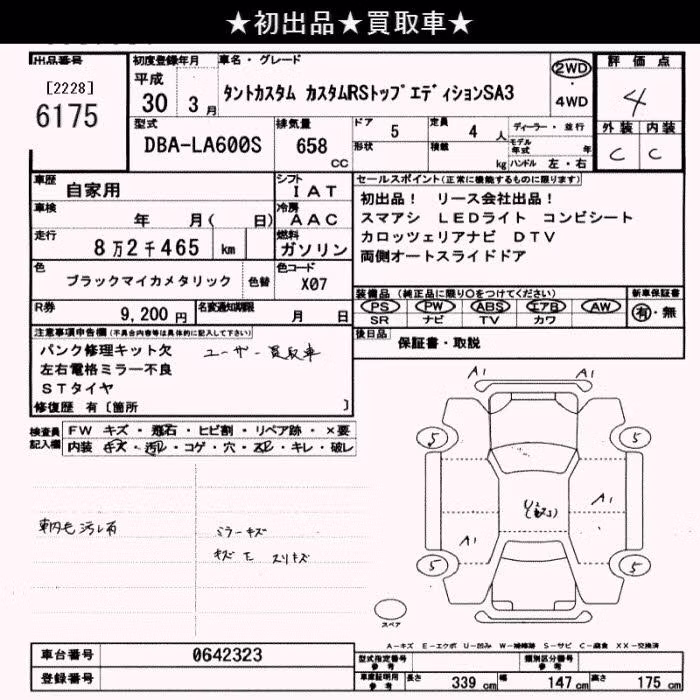 ★初出品★買取車★
出品番号
[2228]
6175
初度登録年月
平成
30 3月
車名・グレード
タントカスタム カスタムRSトップエディションSA3
2WD
・
4WD
評価点
4
外装 内装
C C
型式
DBA-LA600S
排気量
658
CC
ドア 5
形状
定員 4 人
積載 kg
ディーラー・並行
モデル年式 年
ハンドル 左・右
車歴 自家用
車検 年 月( 日)
走行 8万2千465 km
色 ブラックマイカメタリック 色替
シフト
IAT
冷房
AAC
燃料
ガソリン
色コード
X07
R券 9,200円
名変通知期限 月 日
セールスポイント(正常に機能するものに限ります)
初出品! リース会社出品!
スマアシ LEDライト コンビシート
カロッツェリアナビ DTV
両側オートスライドドア
装備品 (純正品に限り○をつけてください)
PS PW ABS エアB AW
SR ナビ TV カワ
新車保証書
有・無
後日品 保証書・取説
注意事項申告欄(不具合内容等は具体的に記入して下さい)
パンク修理キット欠 ユーザー買取車
左右電格ミラー不良
STタイヤ
修復歴 有〔箇所 〕
検査員記入欄
FW キズ・飛石・ヒビ割・リペア跡・×要
内装 キズ・汚レ・コゲ・穴・スレ・キレ・破レ
車内毛汚レ有
ミラーキズ
キズ モ スリキズ
A1 A1
5 5
A1
A1
5 5
スペア
A－キズ E－エクボ U－凹み W－補修跡 S－サビ C－腐食 XX－交換済
車台番号 0642323
登録番号
型式指定番号
参考
類別区分番号
参考
車庫証明用
参考
長さ 339 cm 幅 147 cm 高さ 175 cm